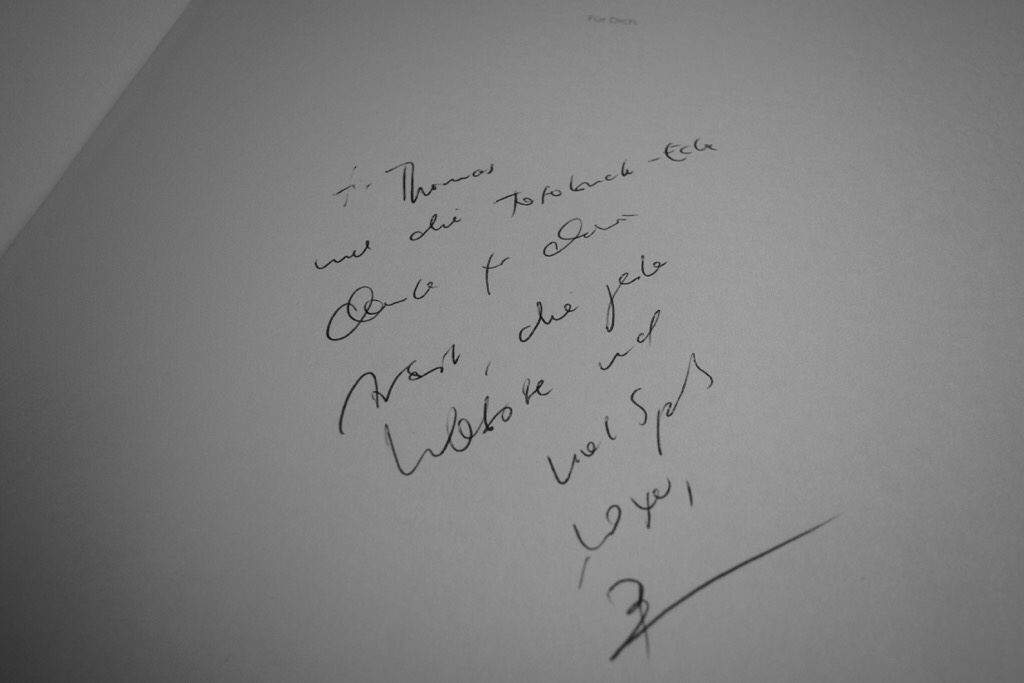 Für Dich
Für Thomas
und die Fotobuch-Ecke
Danke für Deine
Arbeit, die geile
Website und
viel Spaß